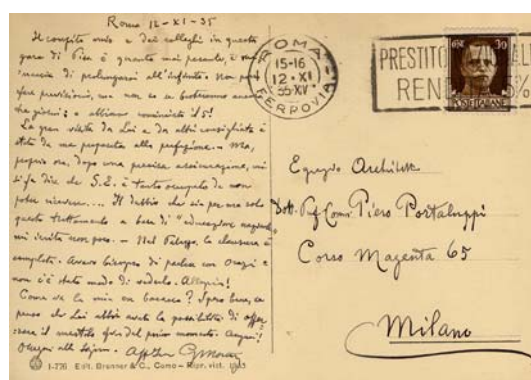 Roma 12-XI-35
Il compito mio e dei colleghi in questa
gara di Pisa è quanto mai pesante, e
minaccia di prolungarsi all'infinito. Non posso
fare previsioni, ma non so se basteranno ancora
giorni; e abbiamo cominciato il 5!
La gran visita da Lei e da altri consigliata è
stata da me preparata alla perfezione. - Ma,
proprio ora, dopo una precisa assicurazione, mi
si fa dire che S.E. è tanto occupato da non
poter ricevere.... Il dubbio che sia per me solo
questo trattamento a base di "educazione
mi irrita non poco. - Nel Palazzo, la clausura è
completa. Avevo bisogno di parlare con Orazi e
non c'è stato modo di vederlo. Allegria!
Come va la mia ex baracca? Spero bene, e
penso che Lei abbia avuto la possibilità di
il mestolo fin dal primo momento. Auguri!
Ossequi alla Signora. Aff.
1-776 Edit. Brunner & C., Como - Ripr. viet.
ROMA
FERROVIA
15-16
12 · XI
35-XIV
PRESTITO
REN 5%
POSTE ITALIANE
30
Egregio Architetto
Dott. Prof. Comm. Piero Portaluppi
Corso Magenta 65
Milano